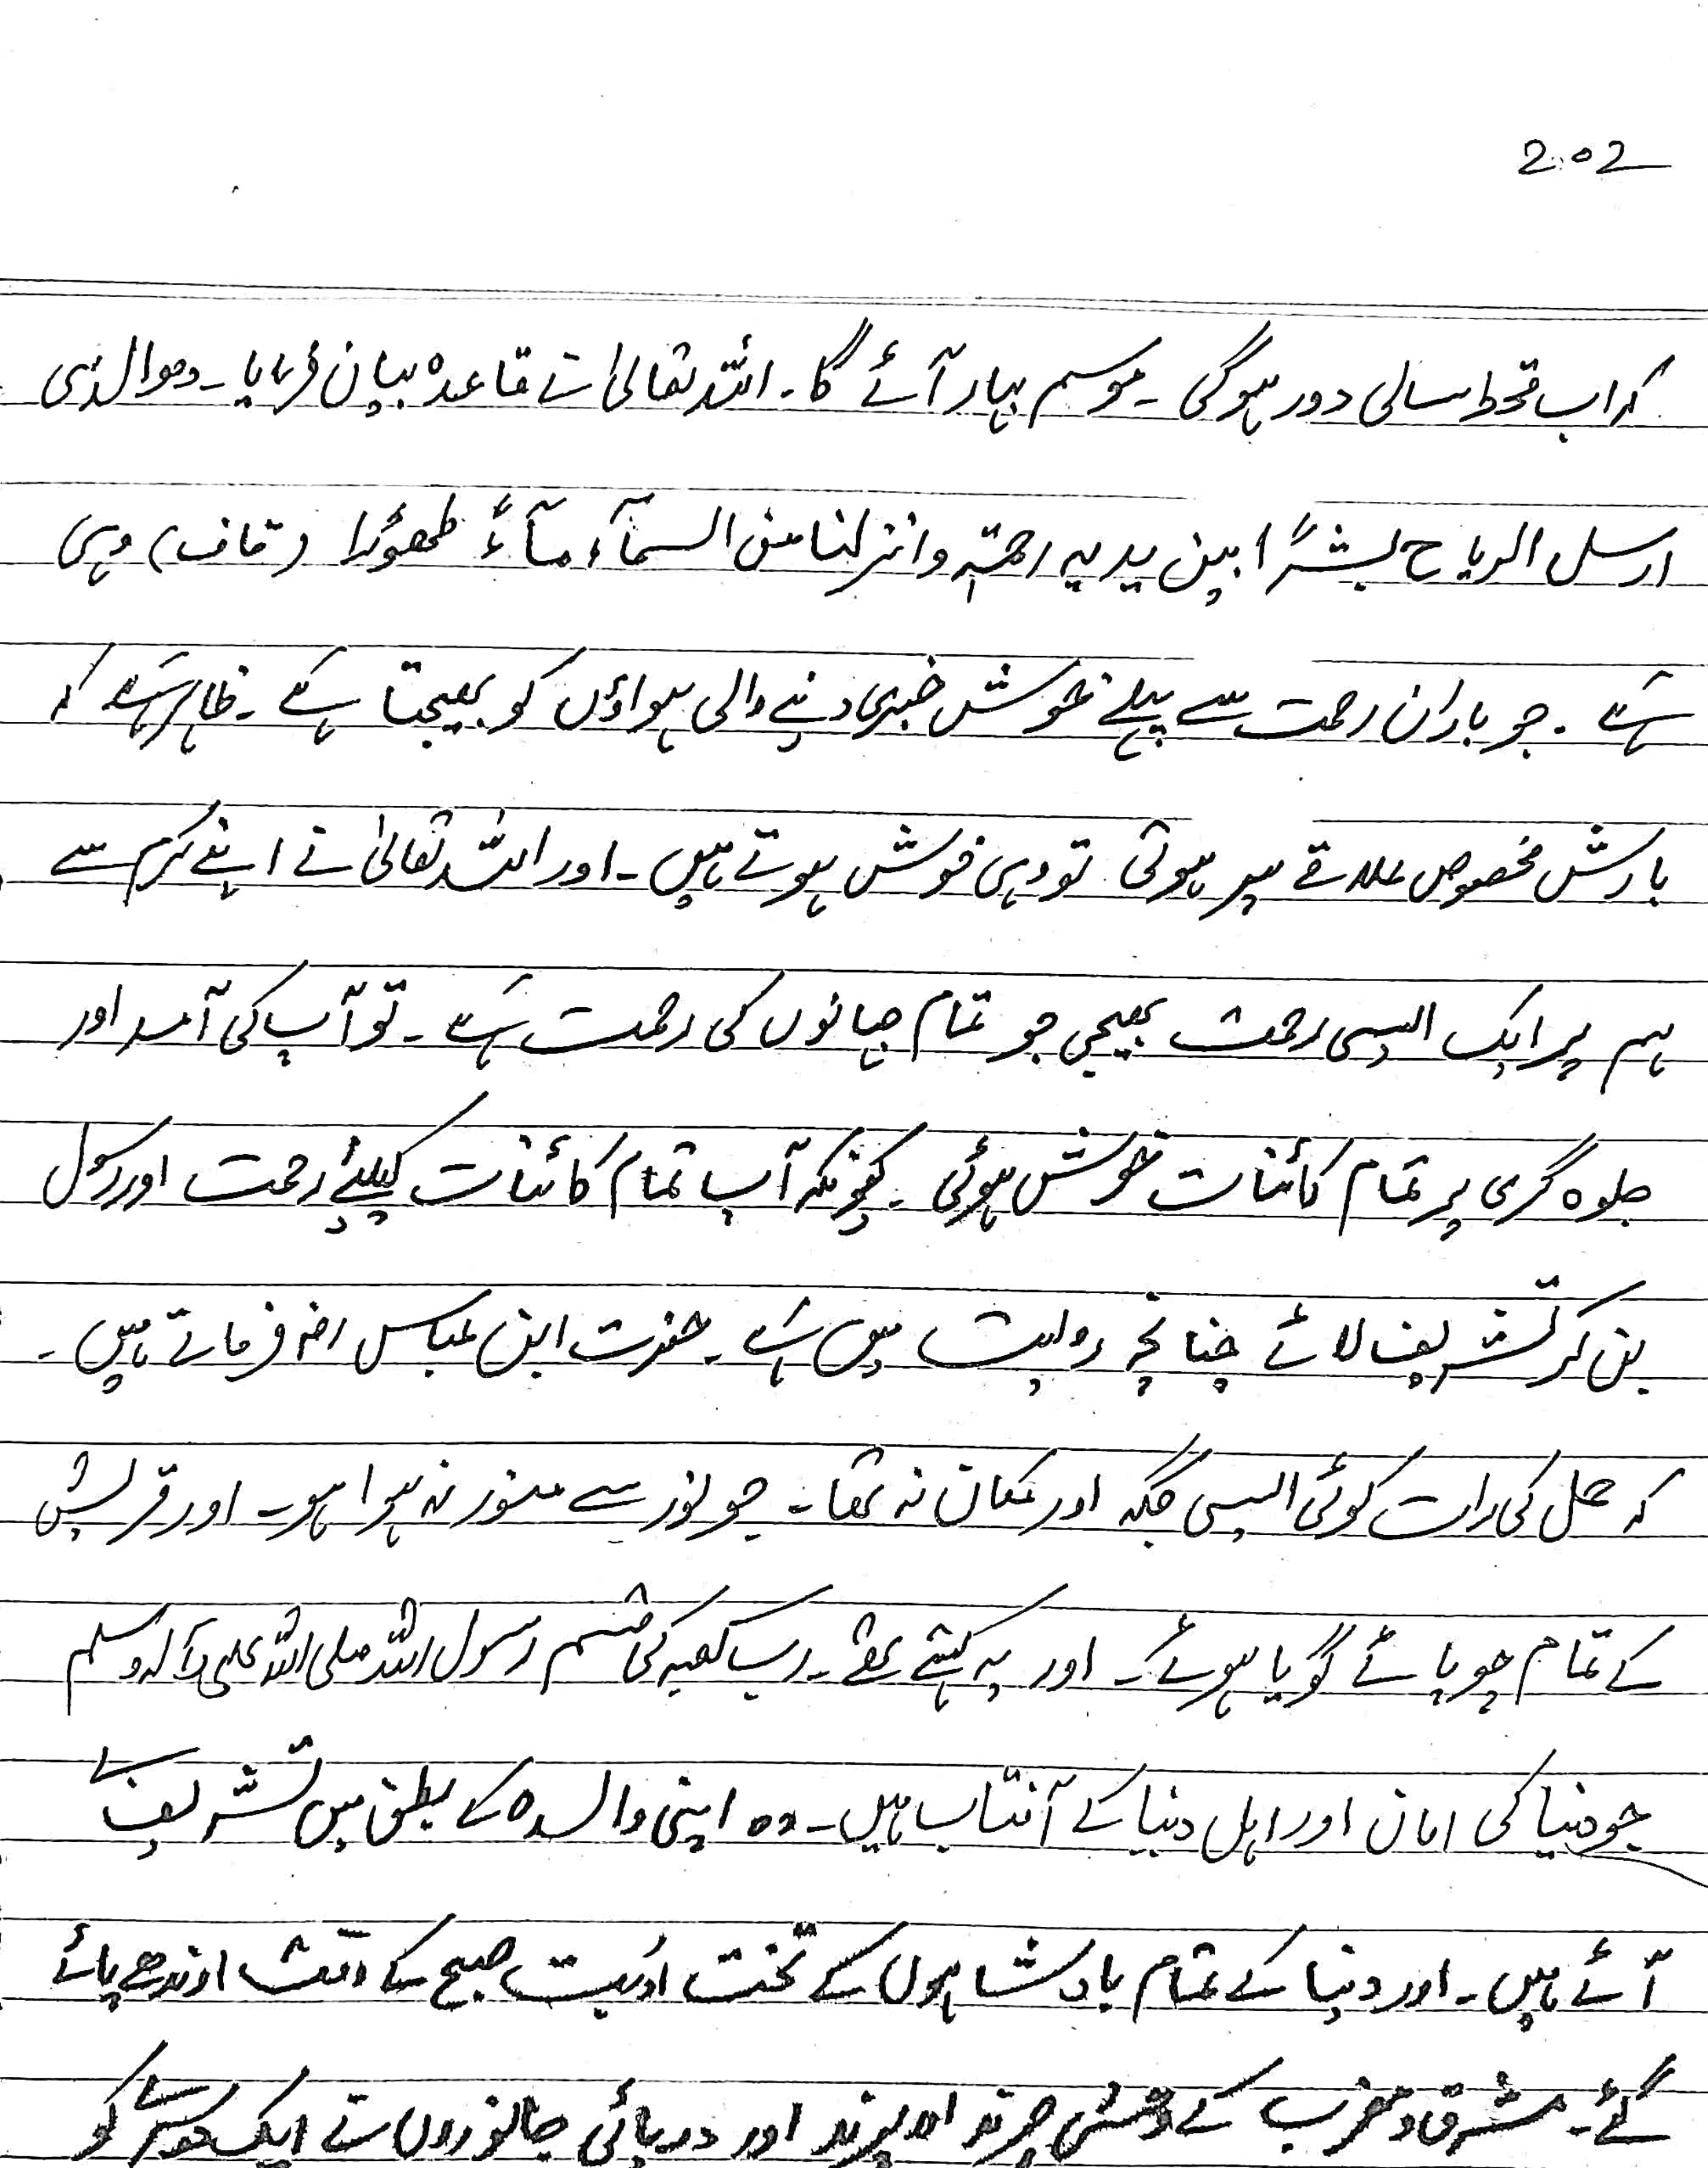 202
کہ اب قحط سالی دور ہوگی ۔ موسم بہار آئے گا ۔ اللہ تعالیٰ نے قاعدہ بیان فرمایا ۔ وھوالذی
ارسل الریاح بشرًا بین یدیہ رحمتہ وانزلنا من السمآء مآءً طھوًرا (قاف) وہی
ہے ۔ جو باران رحمت سے پہلے خوش خبری دینے والی ہواؤں کو بھیجتا ہے ۔ ظاہر ہے کہ
بارش مخصوص علاقے پر ہوتی تو وہی خوش ہوتے ہیں ۔ اور اللہ تعالیٰ نے اپنے کرم سے
ہم پر ایک ایسی رحمت بھیجی جو تمام جہانوں کی رحمت ہے ۔ تو آپ کی آمد اور
جلوہ گری پر تمام کائنات خوش ہوئی ۔ کیونکہ آپ تمام کائنات کیلئے رحمت اور رسول
بن کر تشریف لائے چنانچہ روایت میں ہے ۔ حضرت ابن عباس رضہ فرماتے ہیں ۔
کہ حمل کی رات کوئی ایسی جگہ اور مکان نہ تھا ۔ جو نور سے منور نہ ہوا ہو ۔ اور قریش
کے تمام چوپائے گویا ہوئے ۔ اور یہ کہتے تھے ۔ رب کعبہ کی قسم رسول اللہ صلی اللہ علیہ وآلہ وسلم
جو دنیا کی امان اور اہل دنیا کے آفتاب ہیں ۔ وہ اپنی والدہ کے بطن میں تشریف لے
آئے ہیں ۔ اور دنیا کے تمام بادشاہوں کے تخت صبح کے وقت اوندھے پائے
گئے ۔ مشرق و مغرب کے وحشی چرند اور پرند اور دریائی جانوروں نے ایک دوسرے کو